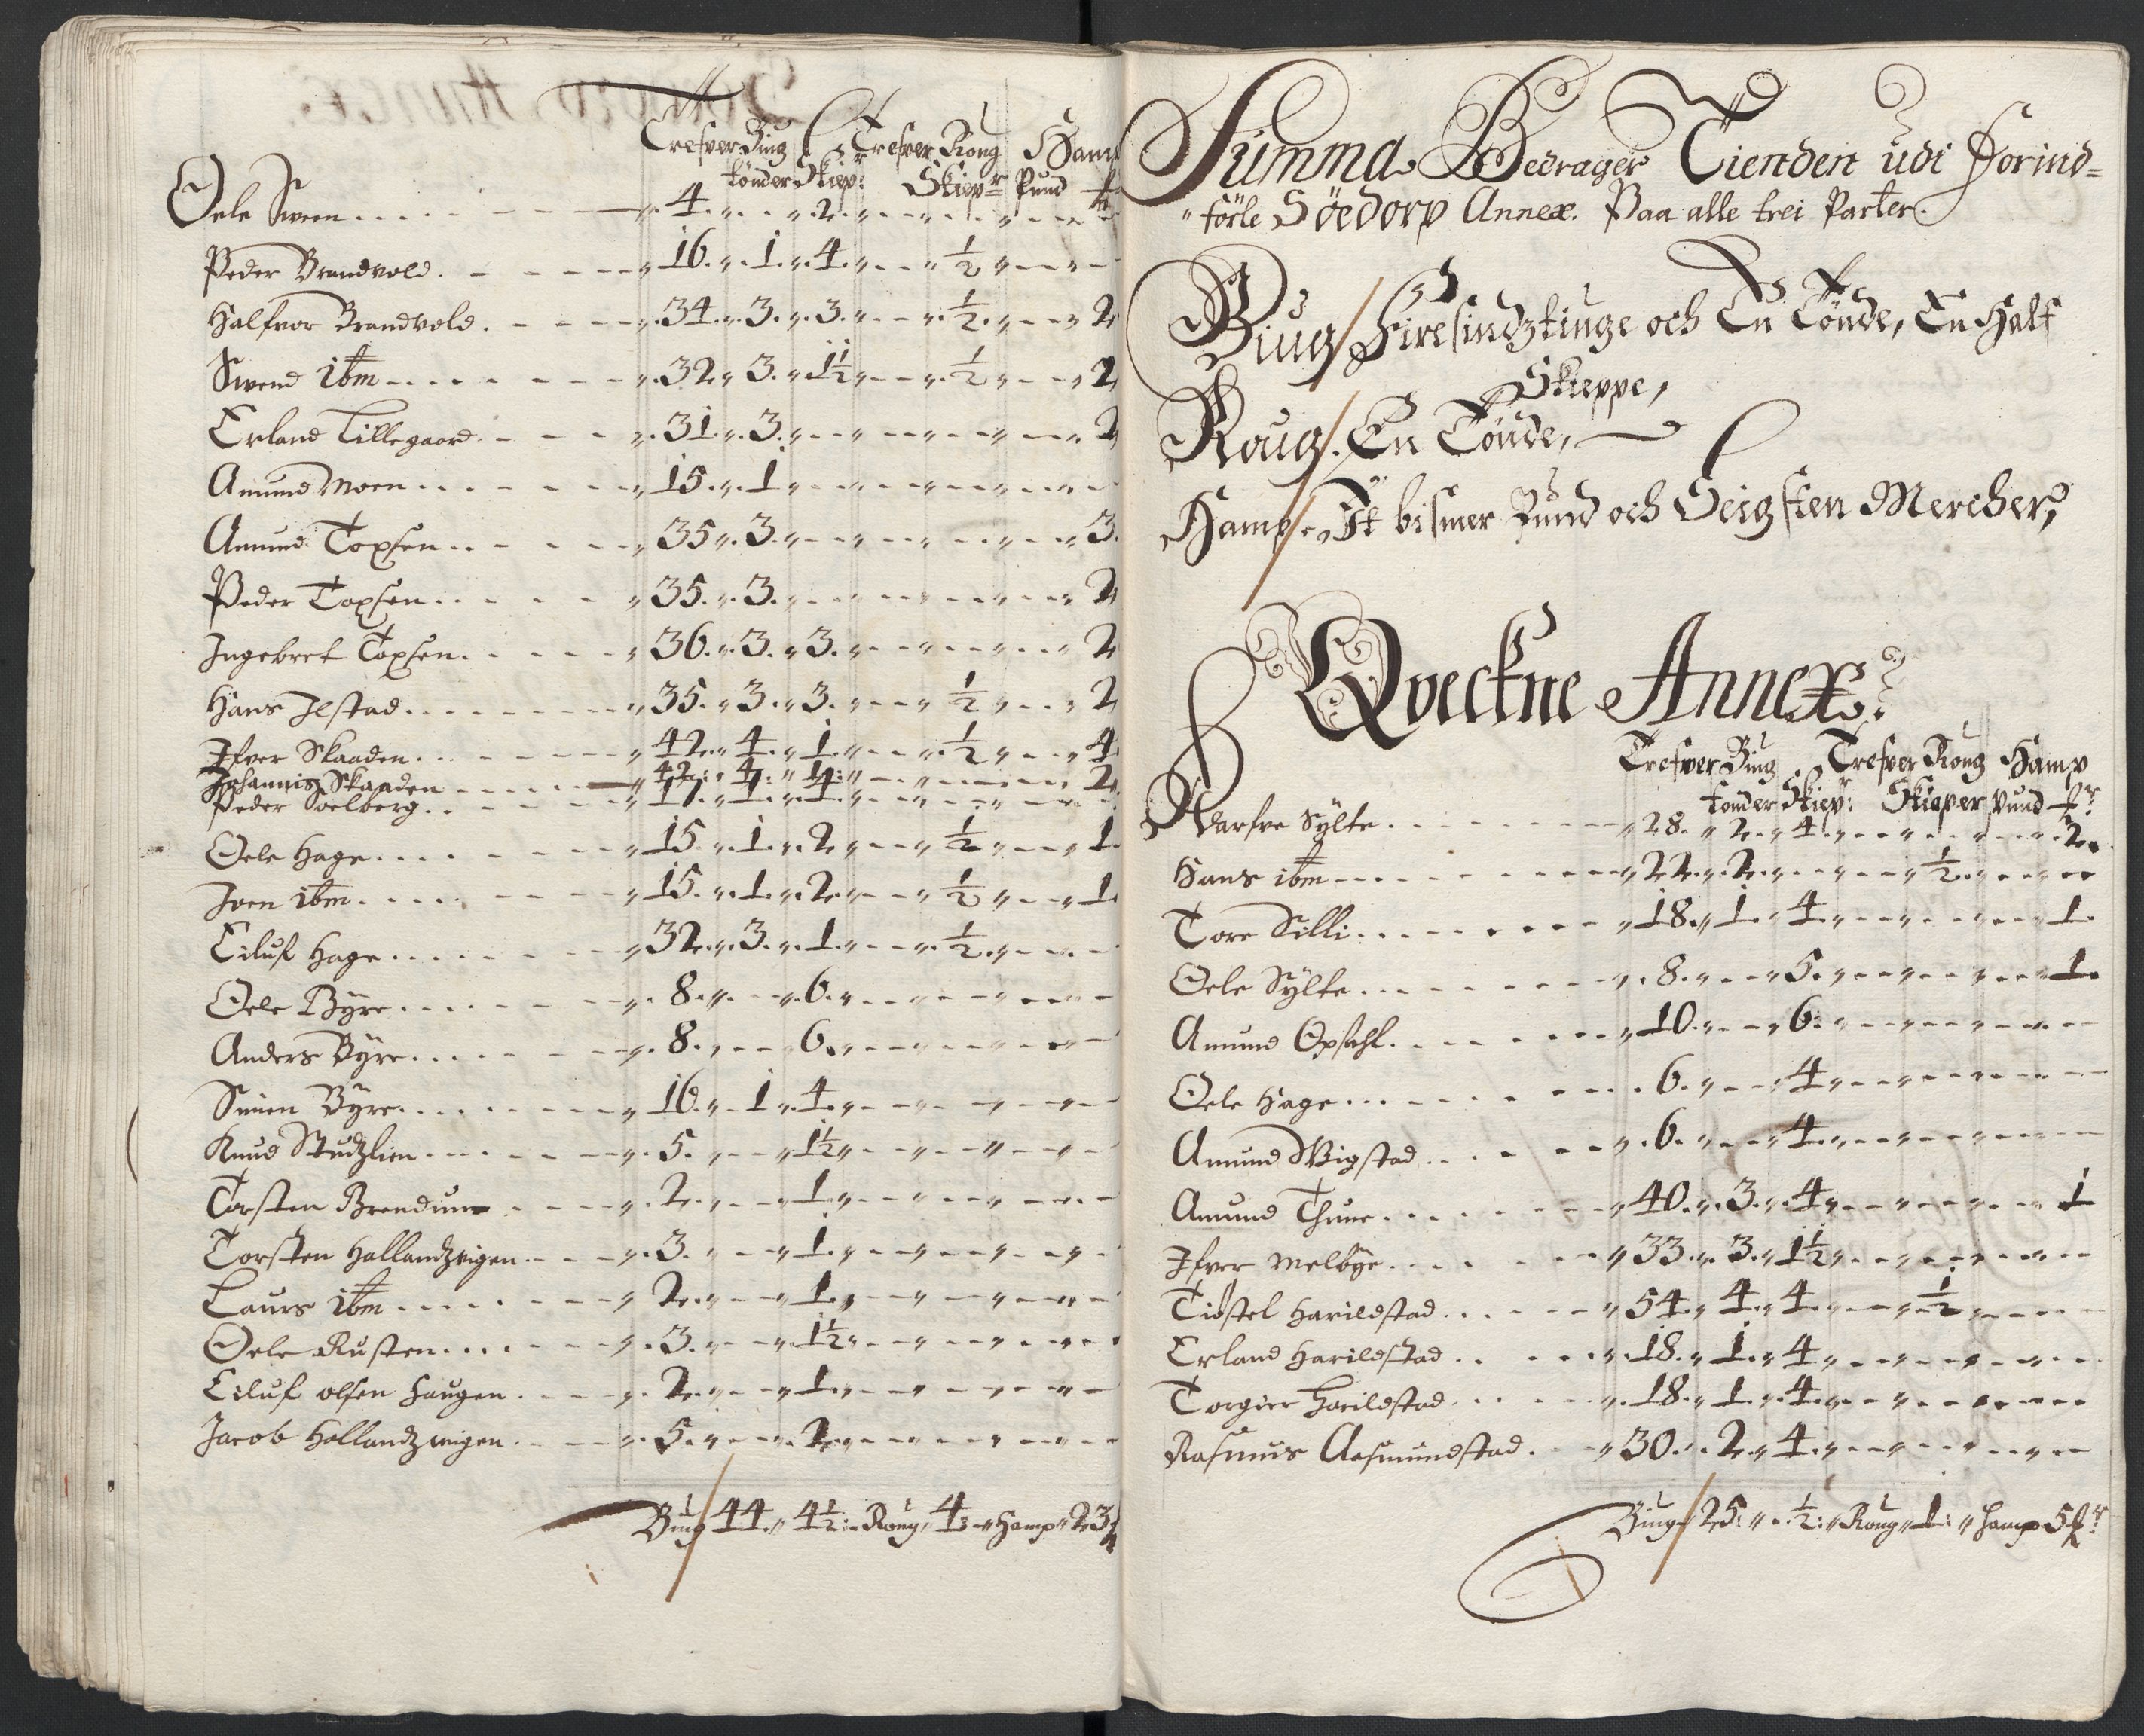 Trefver Biug Trefver Roug Hamp
tönder Skiepr: Skiepr Pund
Oele Sween 4. 2.
Peder Brandvold. 16. 1. 4. ½
Halfvor Brandvold. 34. 3. 3. ½ 2
Swend ibm 32. 3. 1½ ½ 2
Erland Lillegaard. 31. 3. 2
Amund Moen 15. 1
Amund Toxsen 35. 3. 3.
Peder Toxsen 35. 3. 2
Ingebret Toxsen. 36. 3. 3. 2
Hans Ilstad 35. 3. 3. ½ 2
Ifver Skaaden 42. 4. 1. ½ 4
Johannis Skaaden 42. 4. 1. 2
Peder Soelberg 17. 1. 4.
Oele Hage 15. 1. 2. ½ 1.
Joen ibm. 15. 1. 2. ½ 1
Eiluf Hage 32. 3. 1. ½
Oele Byre 8. 6.
Anders Byre 8. 6.
Simen Byre 16. 1. 4.
Knud Studzlien 5. 1½
Torsten Brendum 2. 1.
Torsten Hallandzvigen 3. 1.
Laurs ibm 2. 1.
Oele Rusten 3. 1½
Eiluf olsen haugen 2. 1.
Jacob Hollandzwigen 5. 2.
Biug 44. 4½ Roug 4 Hamp 23
Summa Bedrager Tienden udi Forind=
förle Söedorp Annex. Paa alle trei Parter.
Biug Firesindztiuge och En Tönde, En Half
Skieppe,
Roug. En Tönde,
Hamp. It bismer Pund och Seigsten Mercher,
Qveckne Annex.
Trefver Biug Trefver Roug Hamp
tönder Skiepr: Skieper pund
Narfve Sylte 28. 2. 4. 2.
Hans ibm 22. 2. ½
Tore Silli 18. 1. 4. 1.
Oele Sylte 8. 5. 1.
Amund Opsahl. 10. 6.
Oele Hage 6. 4.
Amund Wigstad 6. 4.
Amund Thune 40. 3. 4. 1
Ifver Melbye 33. 3. 1½
Tiostel Harildstad 54. 4. 4. ½
Erland Harildstad 18. 1. 4.
Torgier Harildstad 18. 1. 4.
Rasmus Aasmundstad. 30. 2. 4.
Biug 25. ½ Roug 1. hamp 5